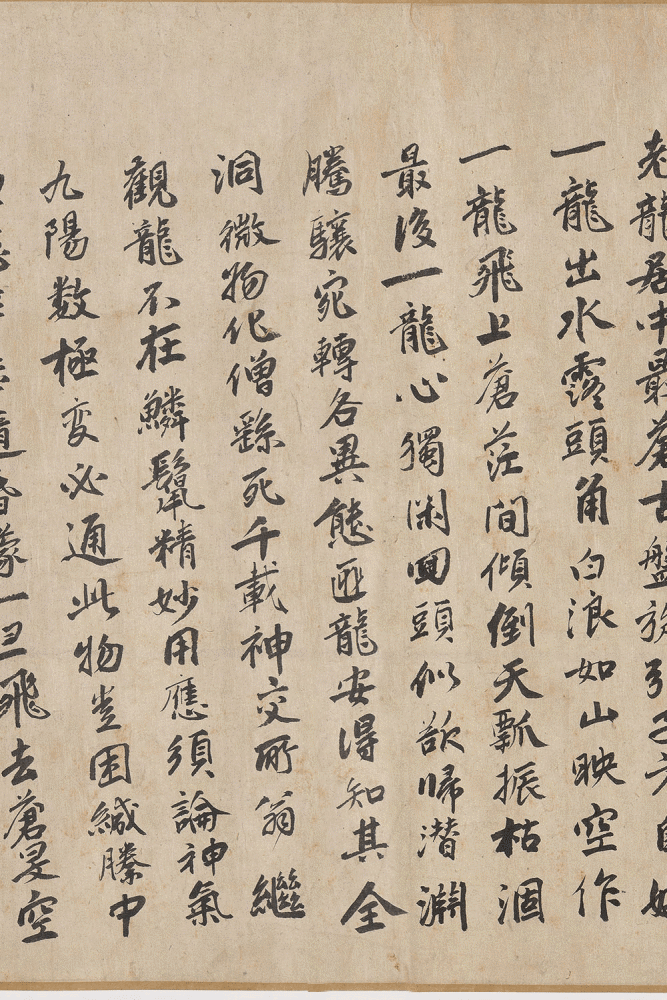 老龍居中最蒼古盤旋引子
一龍出水露頭角白浪如山映空作
一龍飛上蒼茫間傾倒天瓢振枯涸
最後一龍心獨閑回頭似欲歸潛淵
騰驤宛轉各異態匪龍安得知其全
洞微物化僧繇死千載神交所翁繼
觀龍不在鱗鬣精妙用應須論神氣
九陽数極变必通此物豈困緘縢中
一旦飛去蒼旻空